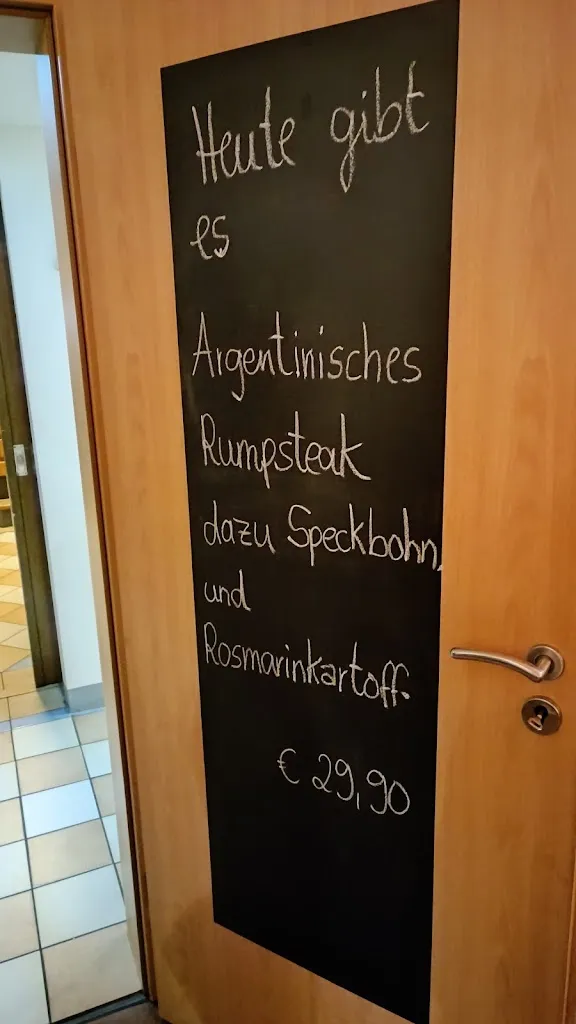 Heute gibt
es
Argentinisches
Rumpsteak
dazu Speckbohn.
und
Rosmarinkartoff.
€ 29,90